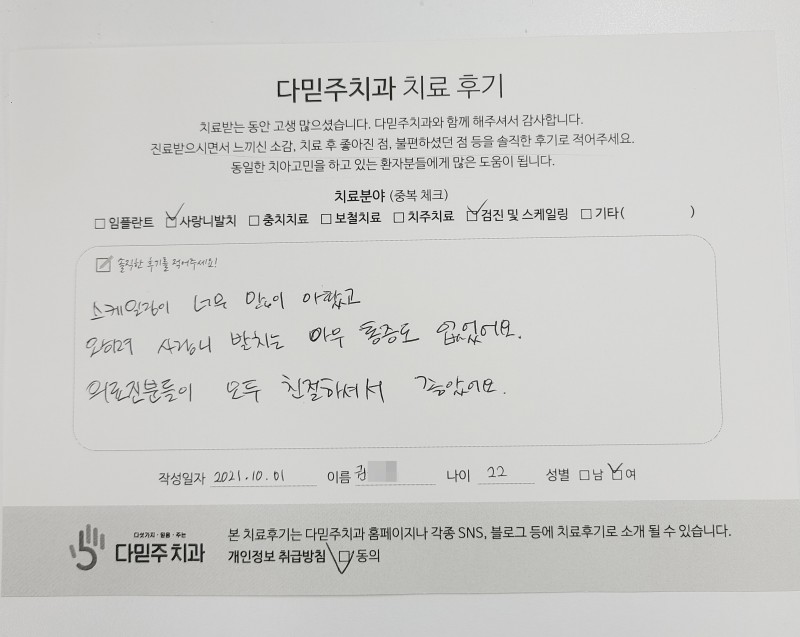 다믿주치과 치료 후기
치료받는 동안 고생 많으셨습니다. 다믿주치과와 함께 해주셔서 감사합니다.
진료받으시면서 느끼신 소감, 치료 후 좋아진 점, 불편하셨던 점 등을 솔직한 후기로 적어주세요.
동일한 치아고민을 하고 있는 환자분들에게 많은 도움이 됩니다.
치료분야 (중복 체크)
□ 임플란트 ☑ 사랑니발치 □ 충치치료 □ 보철치료 □ 치주치료 ☑ 검진 및 스케일링 □ 기타( )
솔직한 후기를 적어주세요!
스케일링이 너무 많이 아팠고
오히려 사랑니 발치는 아무 통증도 없었어요.
의료진분들이 모두 친절하셔서 좋았어요.
작성일자 2021.10.01 이름 권 나이 22 성별 □ 남 ☑ 여
다섯가지·믿음·주는
다믿주치과
본 치료후기는 다믿주치과 홈페이지나 각종 SNS, 블로그 등에 치료후기로 소개 될 수 있습니다.
개인정보 취급방침 ☑ 동의